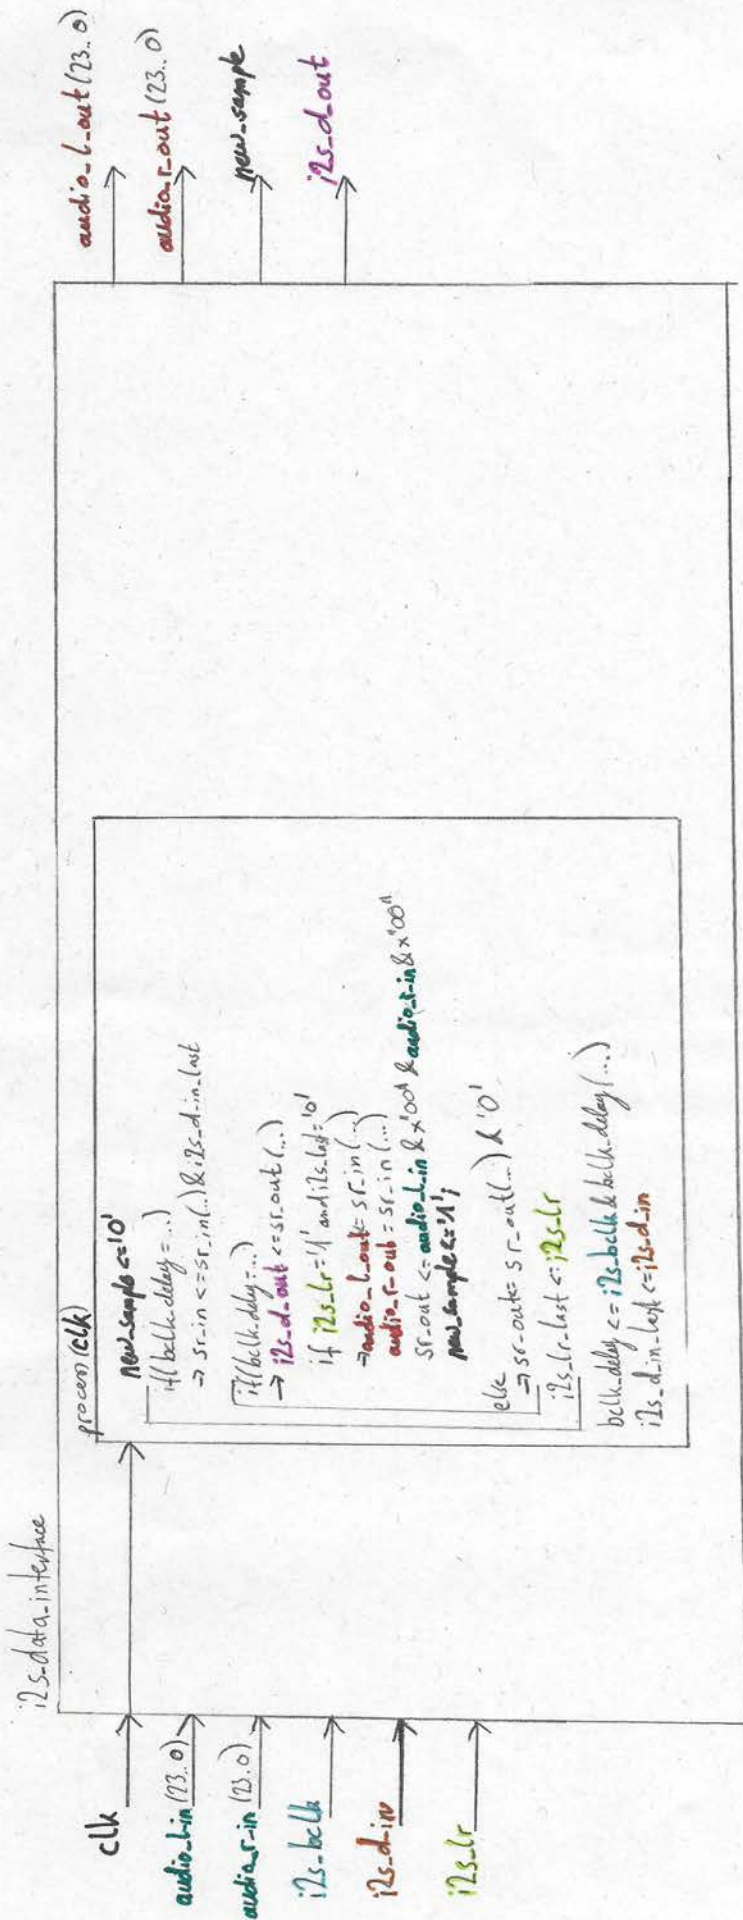 i2s_data_interface
clk
audio_l_in (23..0)
audio_r_in (23..0)
i2s_bclk
i2s_d_in
i2s_lr
process(clk)
new_sample <= '0'
if(bclk_delay = ...)
→ sr_in <= sr_in(...) & i2s_d_in_last
if(bclk_delay = ...)
→ i2s_d_out <= sr_out(...)
if i2s_lr = '1' and i2s_last = '0'
→ audio_l_out <= sr_in(...)
audio_r_out = sr_in(...)
sr_out <= audio_l_in & x"00" & audio_r_in & x"00"
new_sample <= '1';
else
→ sr_out = sr_out(...) & '0'
i2s_lr_last <= i2s_lr
bclk_delay <= i2s_bclk & bclk_delay(...)
i2s_d_in_last <= i2s_d_in
audio_l_out (23..0)
audio_r_out (23..0)
new_sample
i2s_d_out